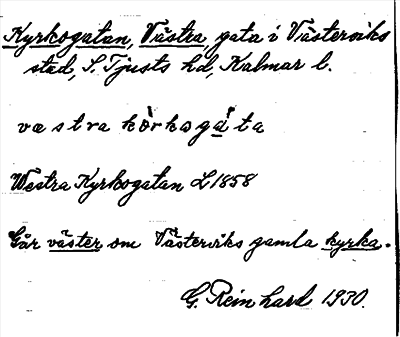 Kyrkogatan, Västra, gata i Västerviks
stad, S. Tjusts hd, Kalmar l.
västra kòrkogáta
Westra Kyrkogatan L 1858
Går väster om Västerviks gamla kyrka.
G. Reinhard 1930.